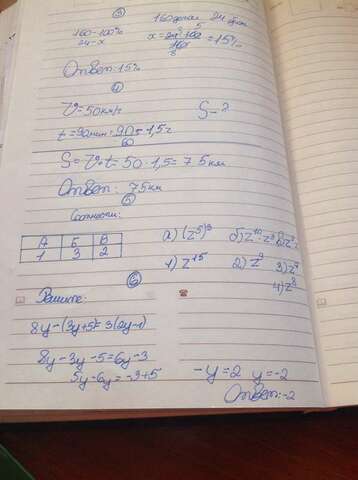 ③
160 деталей 24 брак
160-100%
24-x
x = 24·100/160 = 15%
Ответ: 15%
④
V = 50 км/ч
S-?
t = 90 мин = 90/60 = 1,5 ч
S = V·t = 50 · 1,5 = 75 км
Ответ: 75 км
⑤
Соотнести:
А Б В
1 3 2
а) (z⁵)³ б) z¹⁰:z³
1) z¹⁵ 2) z⁹ 3) z⁷
4) z⁸
⑥
Решите:
8y-(3y+5)=3(2y-1)
8y-3y-5=6y-3
5y-6y=-3+5
-y=2 y=-2
Ответ:-2